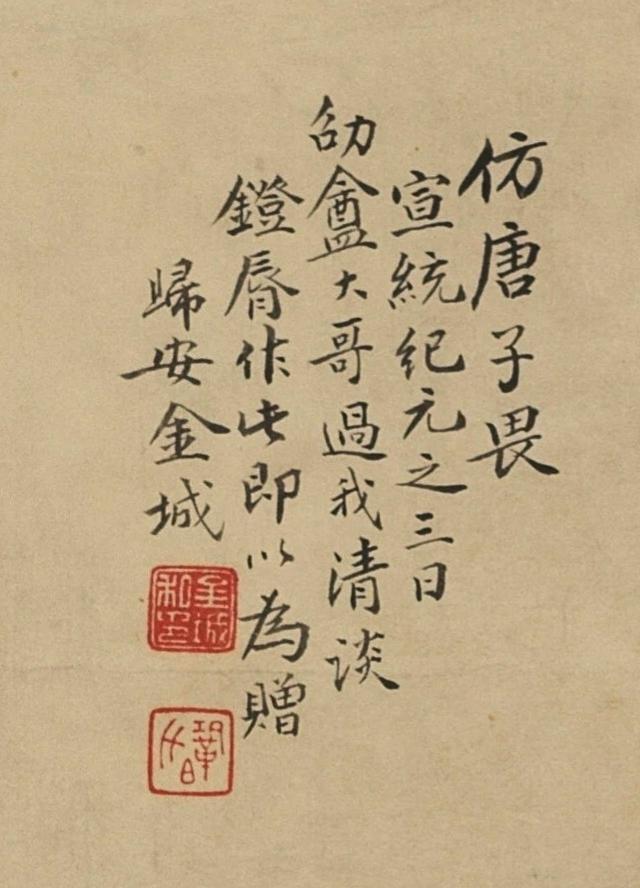 仿唐子畏
宣統紀元之三日
劭盦大哥過我清談
鐙脣作此即以為贈
歸安金城
金城私印
鞏伯